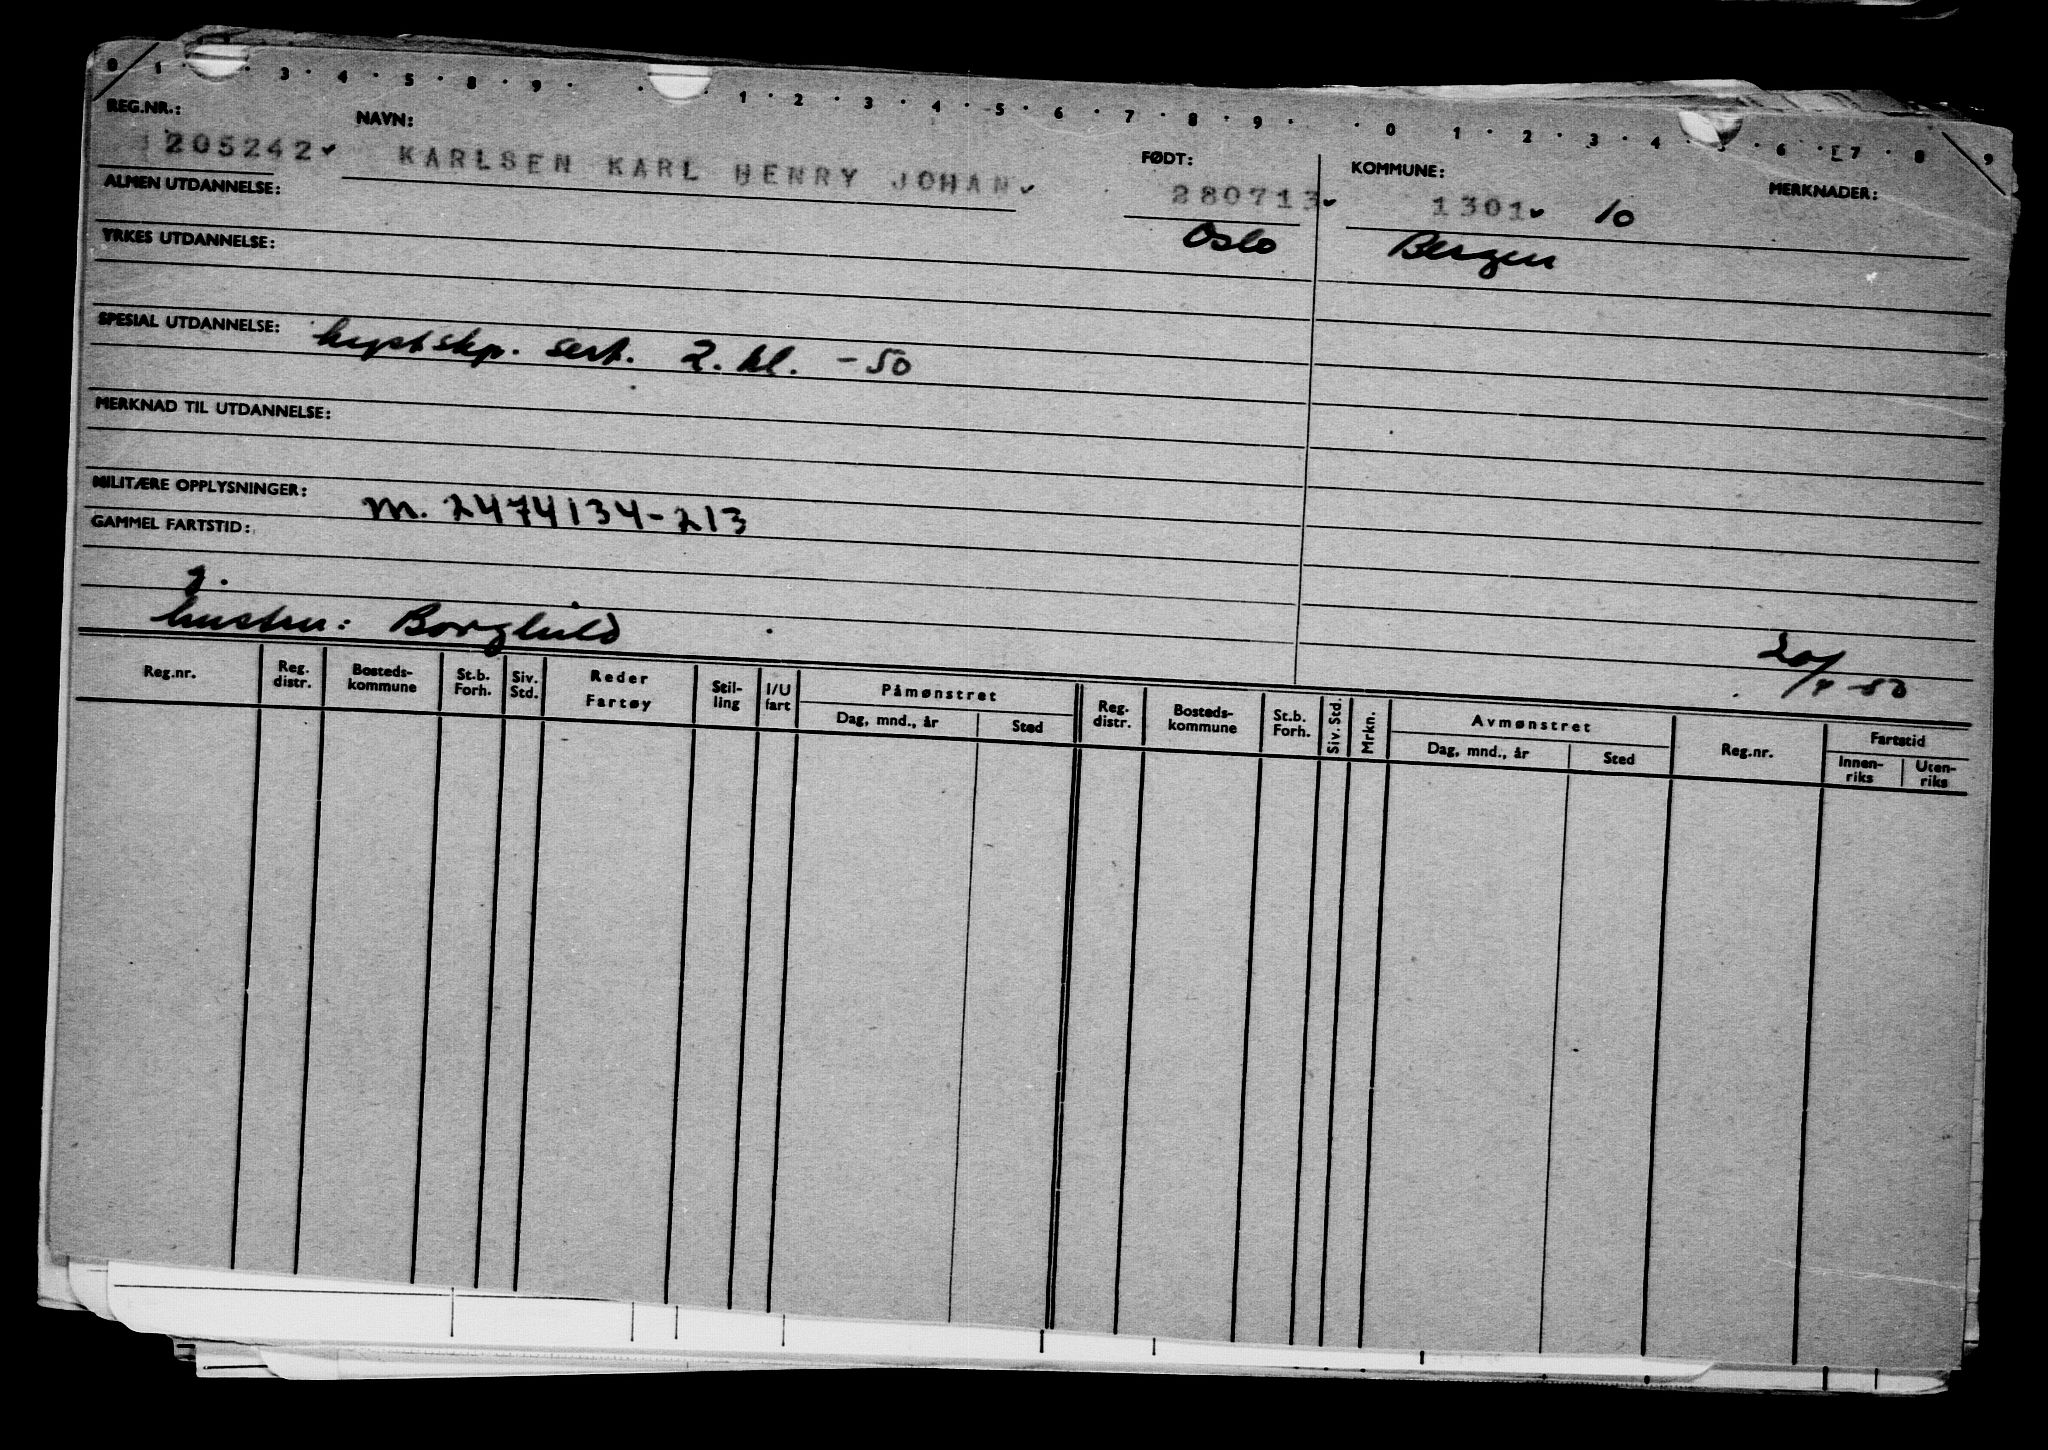 0 1 · · 3 · 4 · 5 · 8 · 9 · · 1 · 2 · 3 · 4 · 5 · 6 · 7 · 8 · 9 · · 0 1 · 2 · 3 · 4 · 5 · 6 · 7 · 8 · 9
REG.NR.: NAVN: FØDT: KOMMUNE: MERKNADER:
205242 KARLSEN KARL HENRY JOHAN 280713 1301 10
ALMEN UTDANNELSE: Oslo Bergen
YRKES UTDANNELSE:
SPESIAL UTDANNELSE: kystskp. sert. 2. kl. -50
MERKNAD TIL UTDANNELSE:
MILITÆRE OPPLYSNINGER: M. 2474134-213
GAMMEL FARTSTID:
g.
hustru: Borghild
Reg.nr. Reg. distr. Bosteds-kommune St.b. Forh. Siv. Std. Reder Fartøy Stil-ling I/U fart Påmønstret Dag, mnd., år Sted Reg. distr. Bosteds-kommune St.b. Forh. Siv. Std. Mrkn. Avmønstret Dag, mnd., år Sted Reg.nr. Fartstid Innen-riks Uten-riks